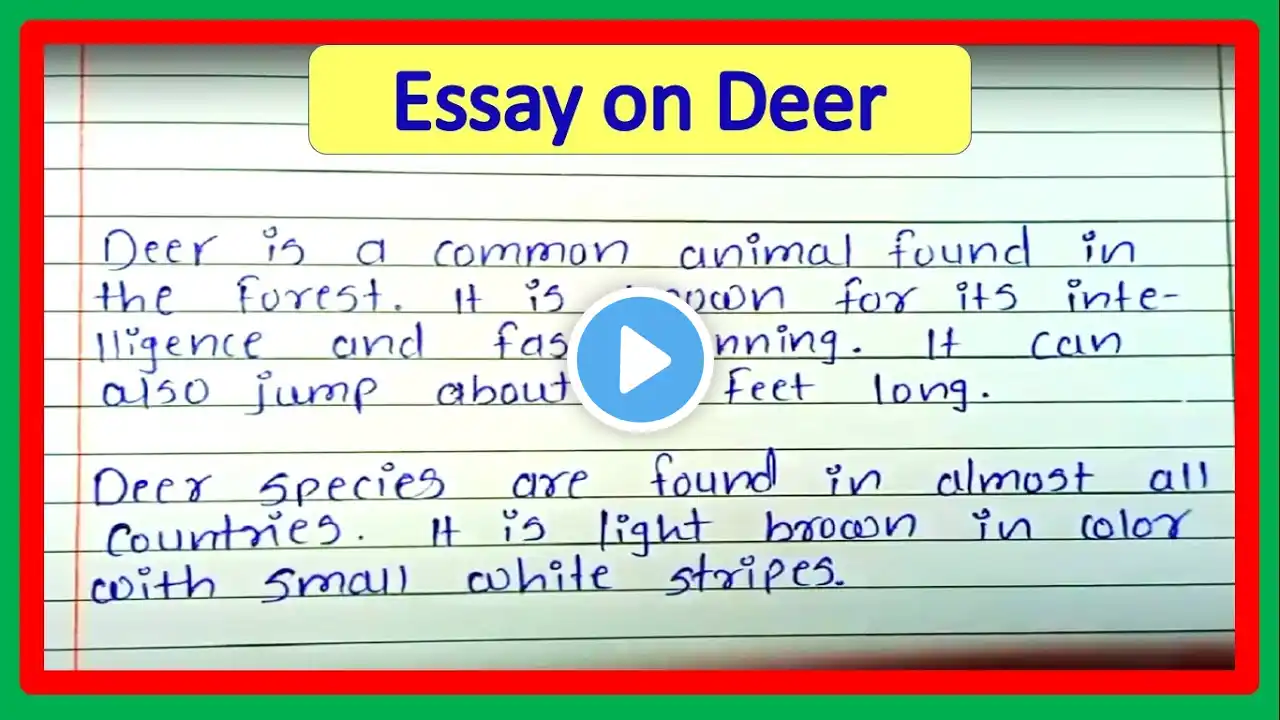 Essay on Deer
Deer is a common animal found in
the forest. It is for its inte-
lligence and . It can
also jump about feet long.
Deer species are found in almost all
countries. It is light brown in color
with small white stripes.